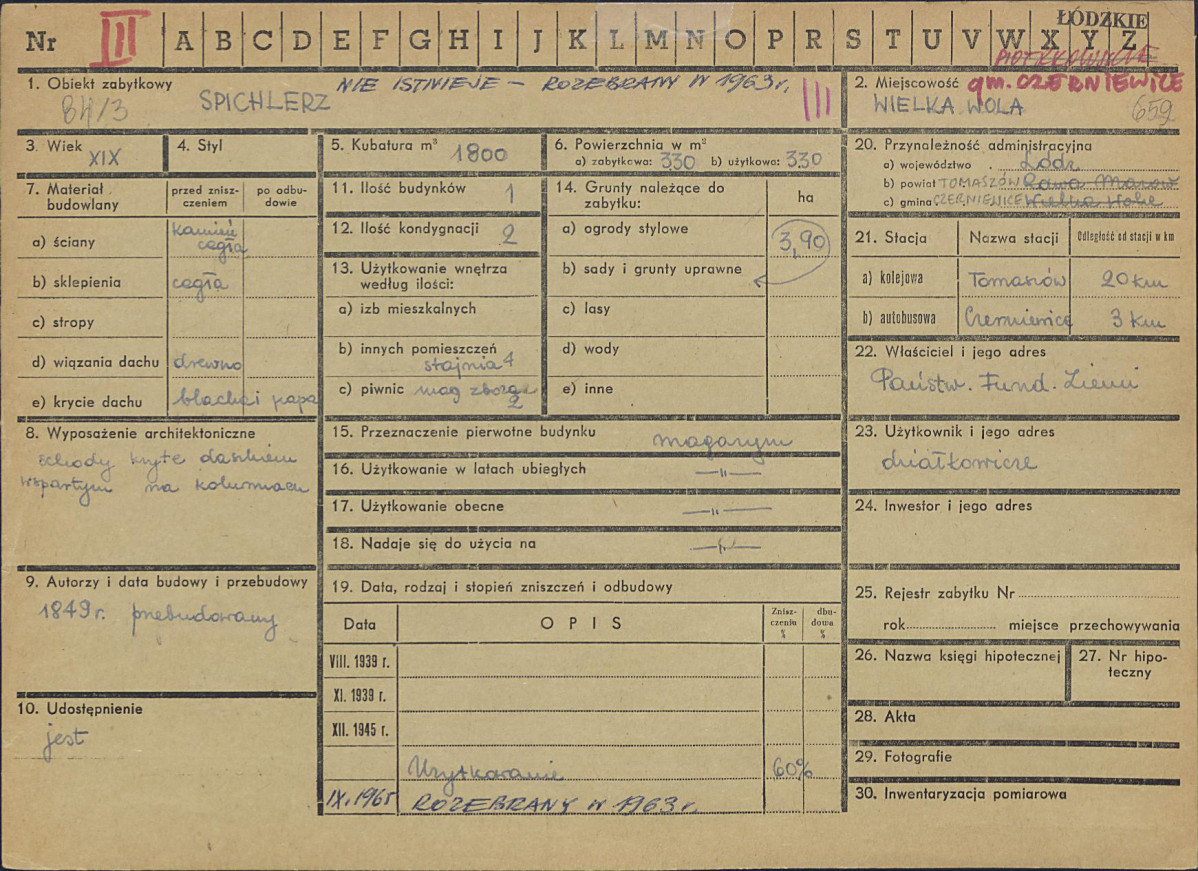 ŁÓDZKIE
Nr III A B C D E F G H I J K L M N O P R S T U V W X Y Z
PIOTRKOWSKIE
1. Obiekt zabytkowy
NIE ISTNIEJE – ROZEBRANY W 1963 r.
84/3
SPICHLERZ
III
2. Miejscowość gm. CZERNIEWICE
WIELKA WOLA
659
3. Wiek XIX
4. Styl
5. Kubatura m³ 1800
6. Powierzchnia w m²
a) zabytkowa: 330 b) użytkowa: 330
7. Materiał budowlany
przed znisz-
czeniem
po odbu-
dowie
a) ściany kamień
cegła
b) sklepienia cegła
c) stropy
d) wiązania dachu drewno
e) krycie dachu blacha i papa
8. Wyposażenie architektoniczne
schody kryte daszkiem
wspartym na kolumnach
9. Autorzy i data budowy i przebudowy
1849 r. przebudowany
10. Udostępnienie
jest
11. Ilość budynków 1
12. Ilość kondygnacji 2
13. Użytkowanie wnętrza
według ilości:
a) izb mieszkalnych
b) innych pomieszczeń
stajnia 4
c) piwnic mag zboża
2
14. Grunty należące do
zabytku:
ha
a) ogrody stylowe 3,90
b) sady i grunty uprawne
c) lasy
d) wody
e) inne
15. Przeznaczenie pierwotne budynku magazyn
16. Użytkowanie w latach ubiegłych —"—
17. Użytkowanie obecne —"—
18. Nadaje się do użycia na —"—
19. Data, rodzaj i stopień zniszczeń i odbudowy
Data
OPIS
Znisz-
czeniu
%
dbu-
dowa
%
VIII. 1939 r.
XI. 1939 r.
XII. 1945 r.
Użytkowanie 60%
IX. 1965 ROZEBRANY W 1963 r.
20. Przynależność administracyjna
a) województwo Łódź
b) powiat TOMASZÓW Rawa Mazow
c) gmina CZERNIEWICE Wielka Wola
21. Stacja
Nazwa stacji
Odległość od stacji w km
a) kolejowa Tomaszów 20 km
b) autobusowa Czerniewice 3 km
22. Właściciel i jego adres
Państw. Fund. Ziemi
23. Użytkownik i jego adres
działkowicze
24. Inwestor i jego adres
25. Rejestr zabytku Nr
rok miejsce przechowywania
26. Nazwa księgi hipotecznej
27. Nr hipo-
teczny
28. Akta
29. Fotografie
30. Inwentaryzacja pomiarowa